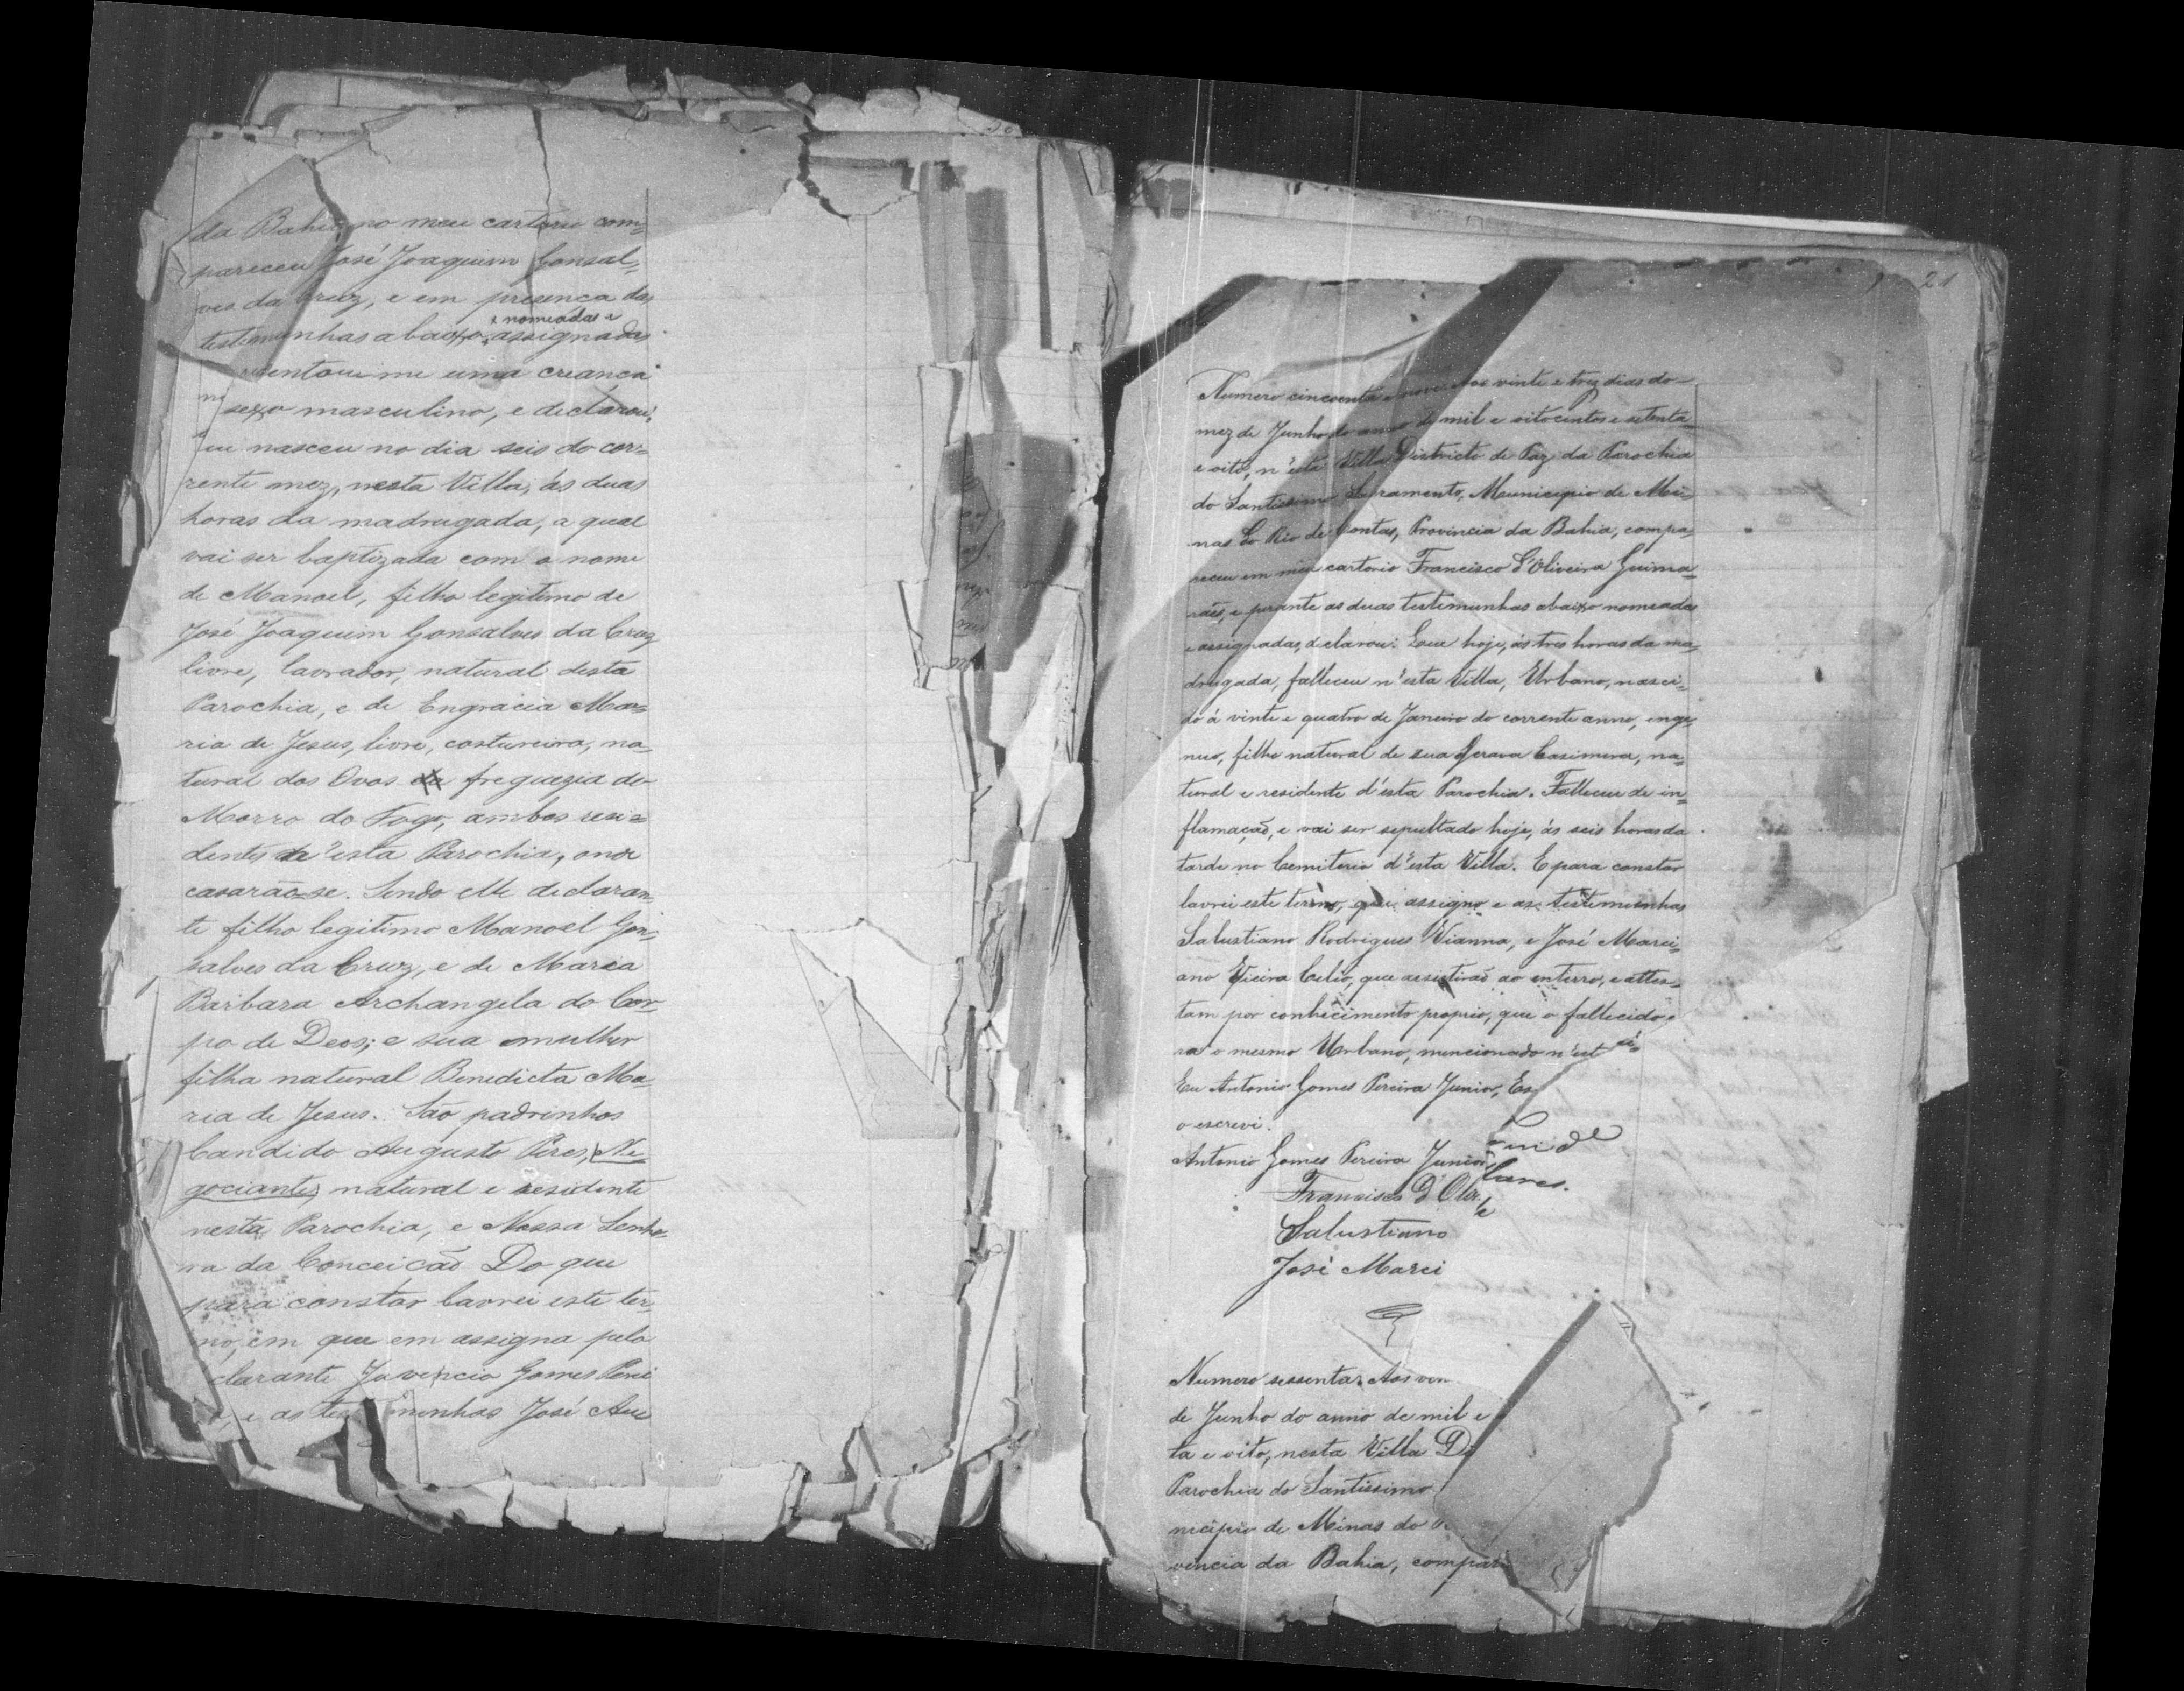 da Bahia, no meu cartorio com=
pareceu José Joaquim Gonsal=
ves da Cruz, e em presenca das
nomeadas e
testemunhas abaixo assignadas
sentou-me uma creanca
sexo masculino, e declarou:
nasceu no dia seis do cor=
rente mez, nesta Villa, ás duas
horas da madrugada, a qual
vai ser baptizada com o nome
de Manoel, filho legitimo de
José Joaquim Gonsalves da Cruz
livre, lavrador, natural desta
Parochia, e de Engracia Ma=
ria de Jesus, livre, costureira, na=
tural dos Ovos freguezia do
Morro do Fogo, ambos resi=
dentes n'esta Parochia, onde
casarão-se. Sendo elle declaran=
te filho legitimo Manoel Gon=
salves da Cruz, e de Maria
Barbara Archangela do Cor=
po de Deos; e sua mulher
filha natural Benedicta Ma=
ria de Jesus. São padrinhos
Candido Augusto Pires, Ne=
gociante, natural e residente
nesta Parochia, e Nossa Senho=
ra da Conceicão Do que
para constar lavrei este ter=
mo, em que em assigna pelo
clarante Juvencio Gomes
e as tes munhas José Au
21
Numero cincoenta e nove. Aos vinte e trez dias do
mez de Junho do anno de mil e oitocentos e setenta
e oito, n'esta Villa Districto de Paz da Parochia
do Santissimo Sacramento, Municipio de Mi=
nas do Rio de Contas, Provincia da Bahia, compa=
receu em meu cartorio Francisco d'Oliveira Guima=
rães, e perante as duas testemunhas abaixo nomeadas
e assignadas, declarou: Que hoje, ás tres horas da ma=
drugada, falleceu n'esta Villa, Urbano, nasci=
do á vinte e quatro de Janeiro do corrente anno, inge=
nuo, filho natural de sua Scrava Casimira, na=
tural e residente d'ésta Parochia. Falleceu de in=
flamação, e vai ser sepultado hoje, ás seis horas da
tarde no Cemiterio d'esta Villa. E para constar
lavrei este termo, que assigno e as testemunhas
Salustiano Rodrigues Vianna, e José Marci=
ano Vieira Celio, que assistirão ao enterro, e attes=
tam por conhecimento proprio, que o fallecido e
ra o mesmo Urbano, mencionado n'est
Eu Antonio Gomes Pereira Junior, Es
o escrevi.
Antonio Gomes Pereira Junior,
Francisco d'Olivr.
Salustiano
José Marci
Numero sessenta. Aos vin
de Junho do anno de mil e
ta e oito, nesta Villa Di
Parochia do Santissimo
nicipio de Minas do
vincia da Bahia, compar